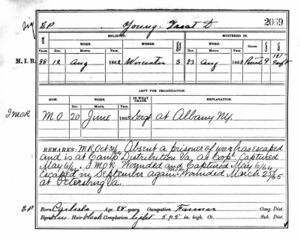 BP Young, Isaac D 2039
ENLISTED MUSTERED IN
WHEN. WHERE. WHEN.
M. I. R. 28 12 Aug 1862 Worcester 3 23 Aug 1862
LEFT THE ORGANIZATION.
WHEN. IN WHAT GRADE. EXPLANATION.
M O 20 June 1865 Serg at Albany NY.
REMARKS: MR Oct 64 Absent a prisoner of war has escaped
and is at Camp Distribution Va. as Corpl. Captured
May 64. Wounded and Captured May 6/64
escaped in September again wounded March 25/65
at Petersburg Va.
BP Born Age 28 years Occupation Farmer Cong. Dist.
Eyes blue Hair black Complexion light 5 ft 5 in. high, Cr. Sub. Dist.